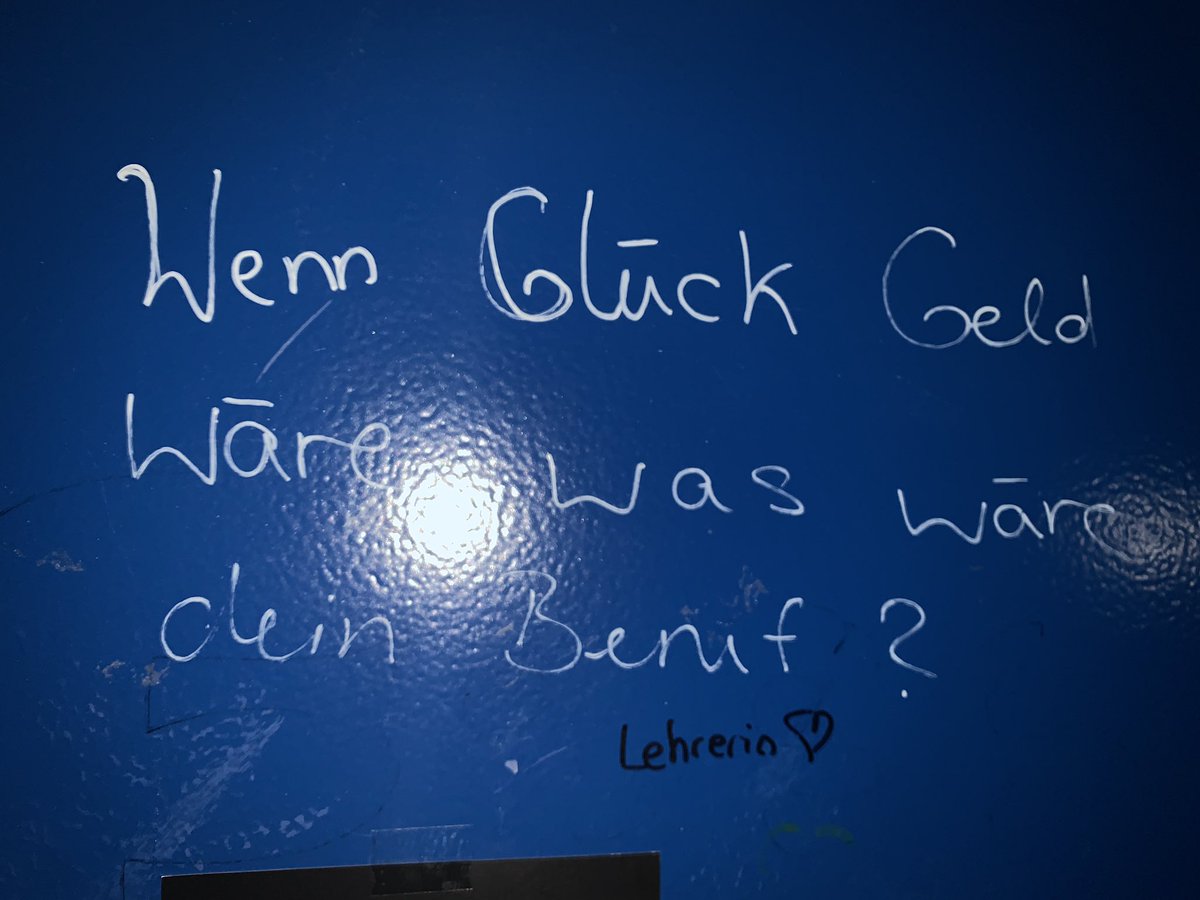 Wenn Glück Geld
Wäre was wäre
dein Beruf?
Lehrerin ♡